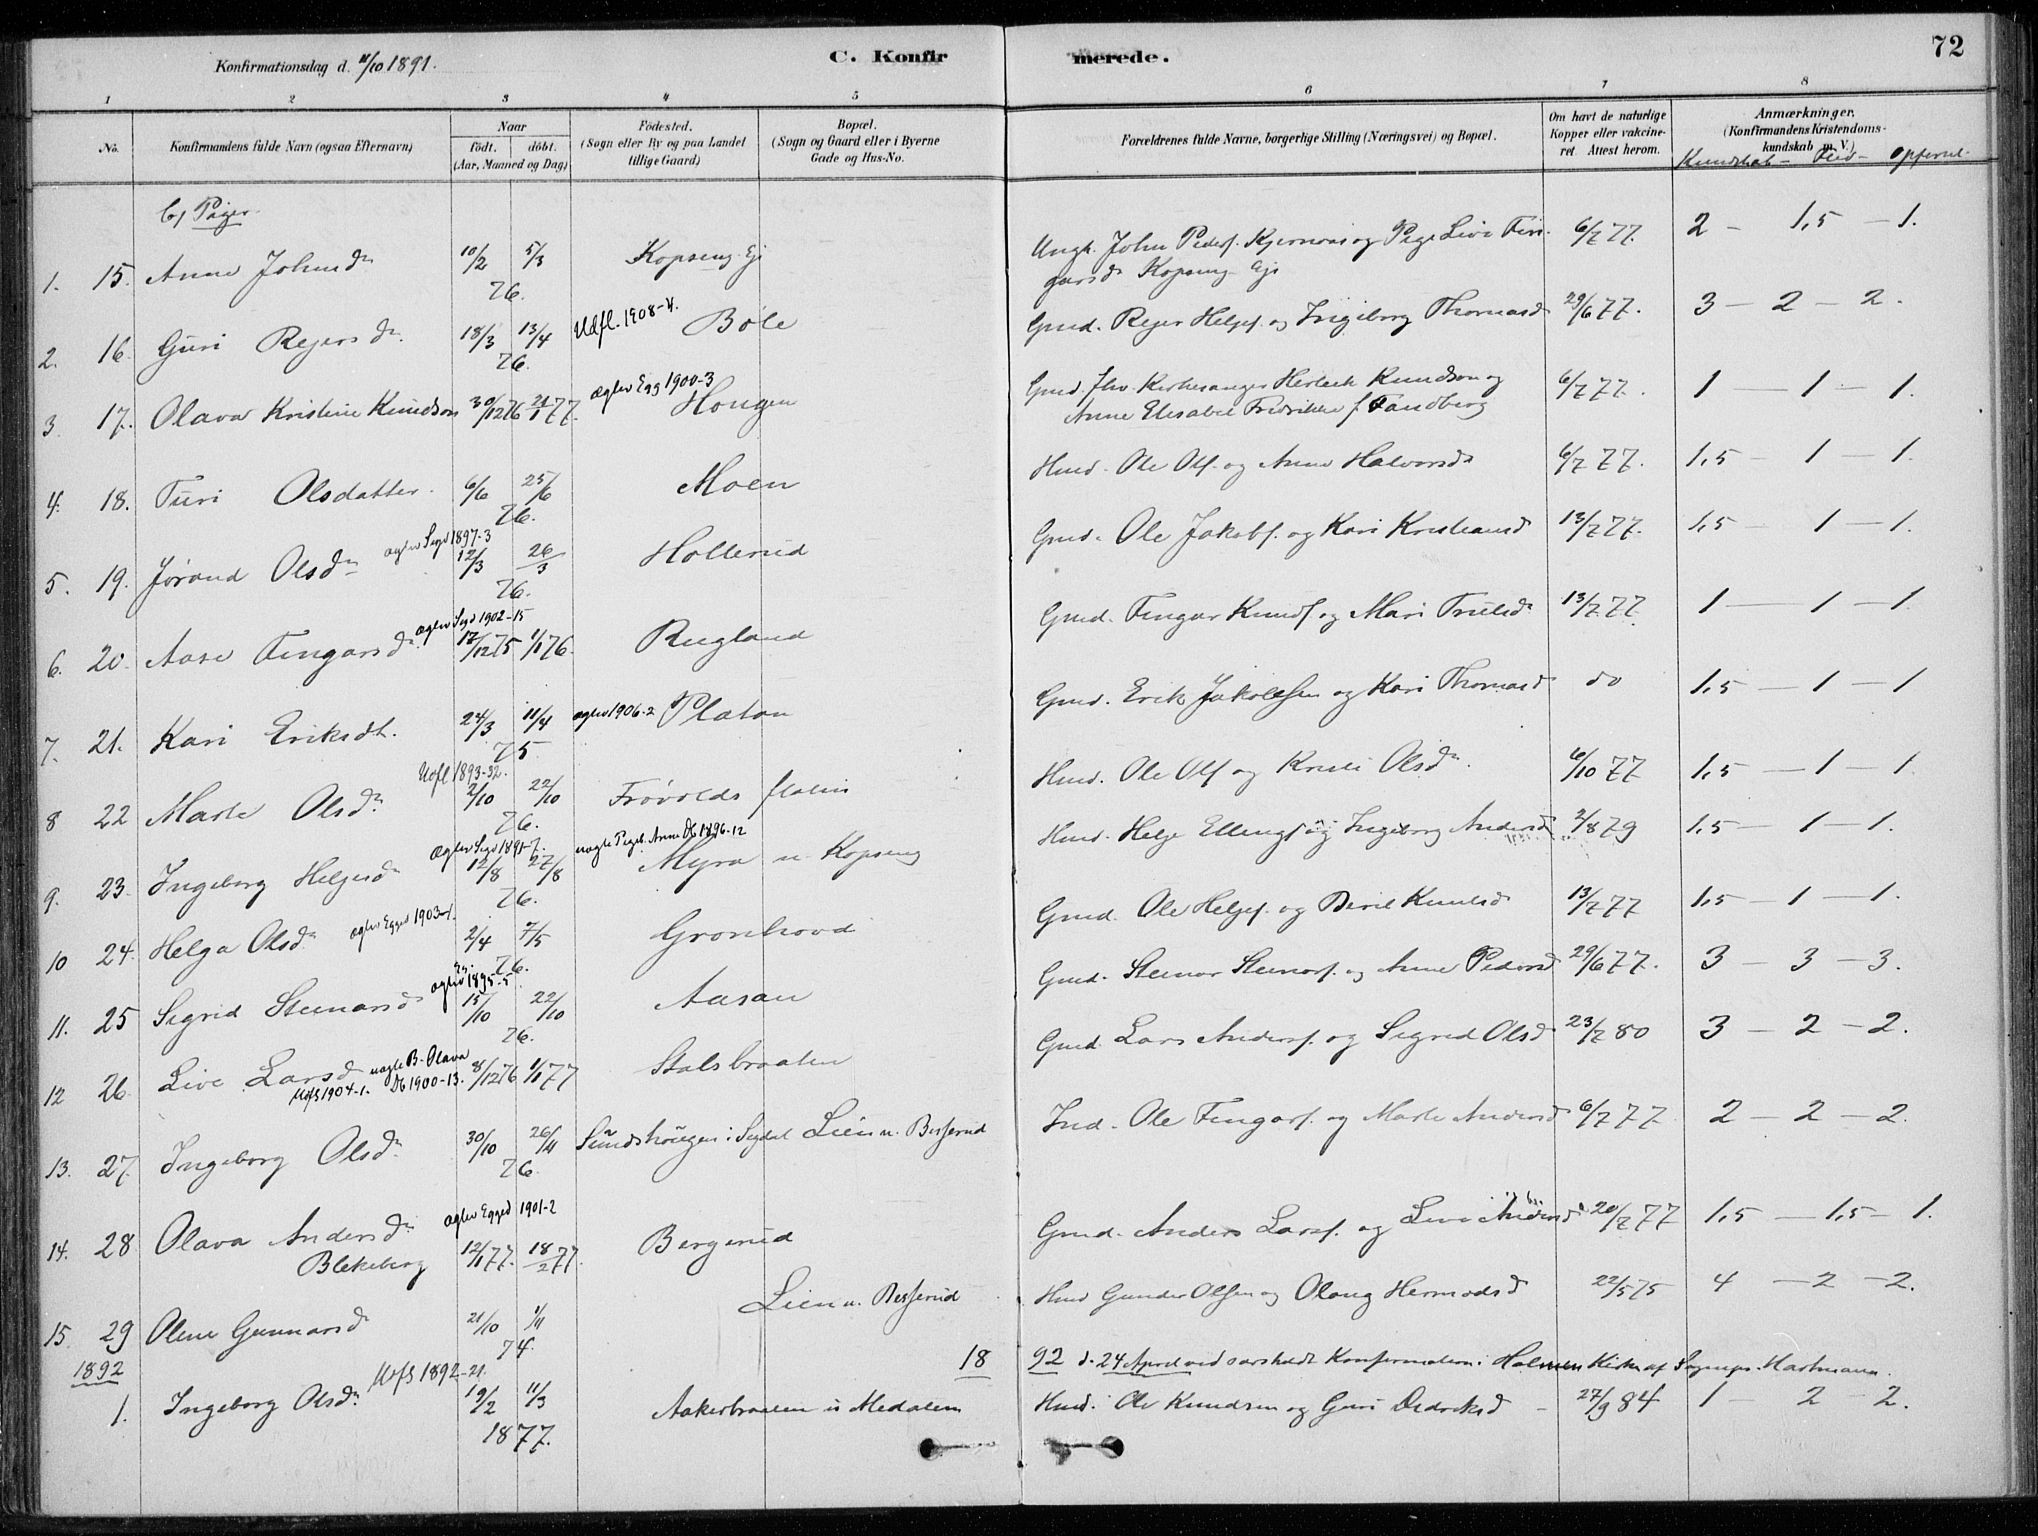 Konfirmationsdag d. 11/10 1891.
C. Konfirmerede.
72
1 2 3 4 5 6 7 8
No.
Konfirmandens fulde Navn (ogsaa Efternavn)
Naar
født. døbt.
(Aar, Maaned og Dag)
Fødested.
(Sogn eller By og paa Landet
tillige Gaard)
Bopæl.
(Sogn og Gaard eller i Byerne
Gade og Hus-No.
Forældrenes fulde Navne, borgerlige Stilling (Næringsvei) og Bopæl.
Om havt de naturlige
Kopper eller vakcine-
ret. Attest herom.
Anmærkninger.
(Konfirmandens Kristendoms-
kundskab m. V.)
Kundskab - Flid - Opførsel
b/ Piger
1. 15. Anne Johnsdr 10/2 5/3 76. Kopseng Eje Ungk. John Peders. Kjernaas og Pige Live Fin- 6/7 77. 2 - 1,5 - 1.
garsdr Kopseng Eje
2. 16. Guri Reiersdr. 18/3 13/4 76. Udfl. 1908-4. Bøle Gmd. Reier Helges. og Ingeborg Thomasdr 29/6 77. 3 - 2 - 2.
3. 17. Olava Kristine Knudson 30/12 76 21/1 77. ægtev Egg 1900-3 Hougen Gmd. fhv. Kirkesanger Herleik Knudson og 6/7 77. 1 - 1 - 1.
Anne Elisabet Fredrikke f. Sandberg
4. 18. Turi Olsdatter. 6/6 25/6 76. Moen Hmd. Ole Ols. og Anne Halvorsdr 6/7 77. 1,5 - 1 - 1.
5. 19. Jørand Olsdr ægtev Sigd 1897-3 12/3 26/3 76. Hollerud Gmd. Ole Jakobs. og Kari Kristiansdr 13/7 77. 1,5 - 1 - 1.
6. 20. Aase Fingarsdr. ægtev Sigd 1902-15 17/12 75 1/1 76. Rugland Gmd. Fingar Knuds. og Mari Trulsdr 13/7 77 1 - 1 - 1.
7. 21. Kari Eriksdt. 24/3 11/4 75 ægtev 1906-2 Platon Gmd. Erik Jakobsen og Kari Thomasdr do 1,5 - 1 - 1
8 22 Marte Olsdr. Udfl 1893-32. 2/10 22/10 76. Frøvolds Hmd. Ole Ols og Kristi Olsdr. 6/10 77 1,5 - 1 - 1.
9. 23. Ingeborg Helgesdr ægtev Sigd 1891-7. 12/8 27/8 76. uægte Pigeb. Anne Db 1896-12 Myra u. Kopseng Hmd. Helge Ellings. og Ingeborg Andersdr 2/8 79 1,5 - 1 - 1.
10 24. Helga Olsdr ægtev Egged 1903-1. 2/4 7/5 76. Grønhovd Gmd. Ole Helges. og Beret Knutsdr 13/7 77 1,5 - 1 - 1.
11. 25 Sigrid Steinarsdr ægtev 1895-5 15/10 22/10 76. Aasan Gmd. Steinar Steinars. og Anne Pedersdr 29/6 77. 3 - 3 - 3.
12 26. Live Larsdr uægte B. Olava Db 1900-13. Udfl 1904-1. 8/12 76 1/1 77 Stalsbraaten Gmd. Lars Anders. og Sigrid Olsdr 23/7 80 3 - 2 - 2.
13. 27. Ingeborg Olsdr. 30/10 26/11 76. Sundshougen i Sigdal Lien u. Besserud Ind. Ole Fingars. og Marte Andersdr 6/7 77. 2 - 2 - 2.
14. 28 Olava Andersdr ægtev Egged 1901-2 12/1 77. 18/2 77. Bergerud Gmd. Anders Lars. og Live Andersdr 20/7 77 1,5 - 1,5 - 1.
Blekeberg
15. 29 Oline Gunnarsdr 21/10 1/11 74. Lien u. Besserud Hmd Gunder Olsen og Olaug Hermodsdr 22/5 75 4 - 2 - 2.
1892 1892 d. 24 April ved særskilt Konfirmation i Holmen Kirke af Sognepr. Hartmann.
1. Ingeborg Olsdr. Udfl 1892-21. 19/2 11/3 1877. Aakerbraaten u Medalen Hmd. Ole Knudsen og Guri Didriksdr - 27/9 84 1 - 2 - 2.